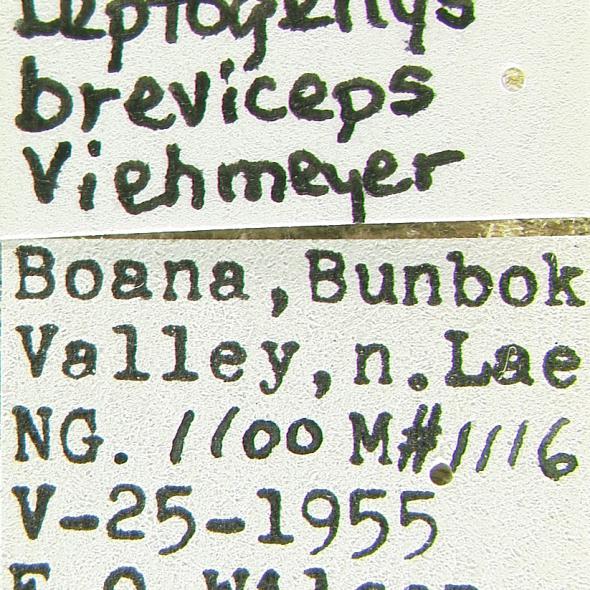 Leptogenys
breviceps
Viehmeyer
Boana, Bunbok
Valley, n. Lae
NG. 1100 M #1116
V-25-1955
E. O. Wilson